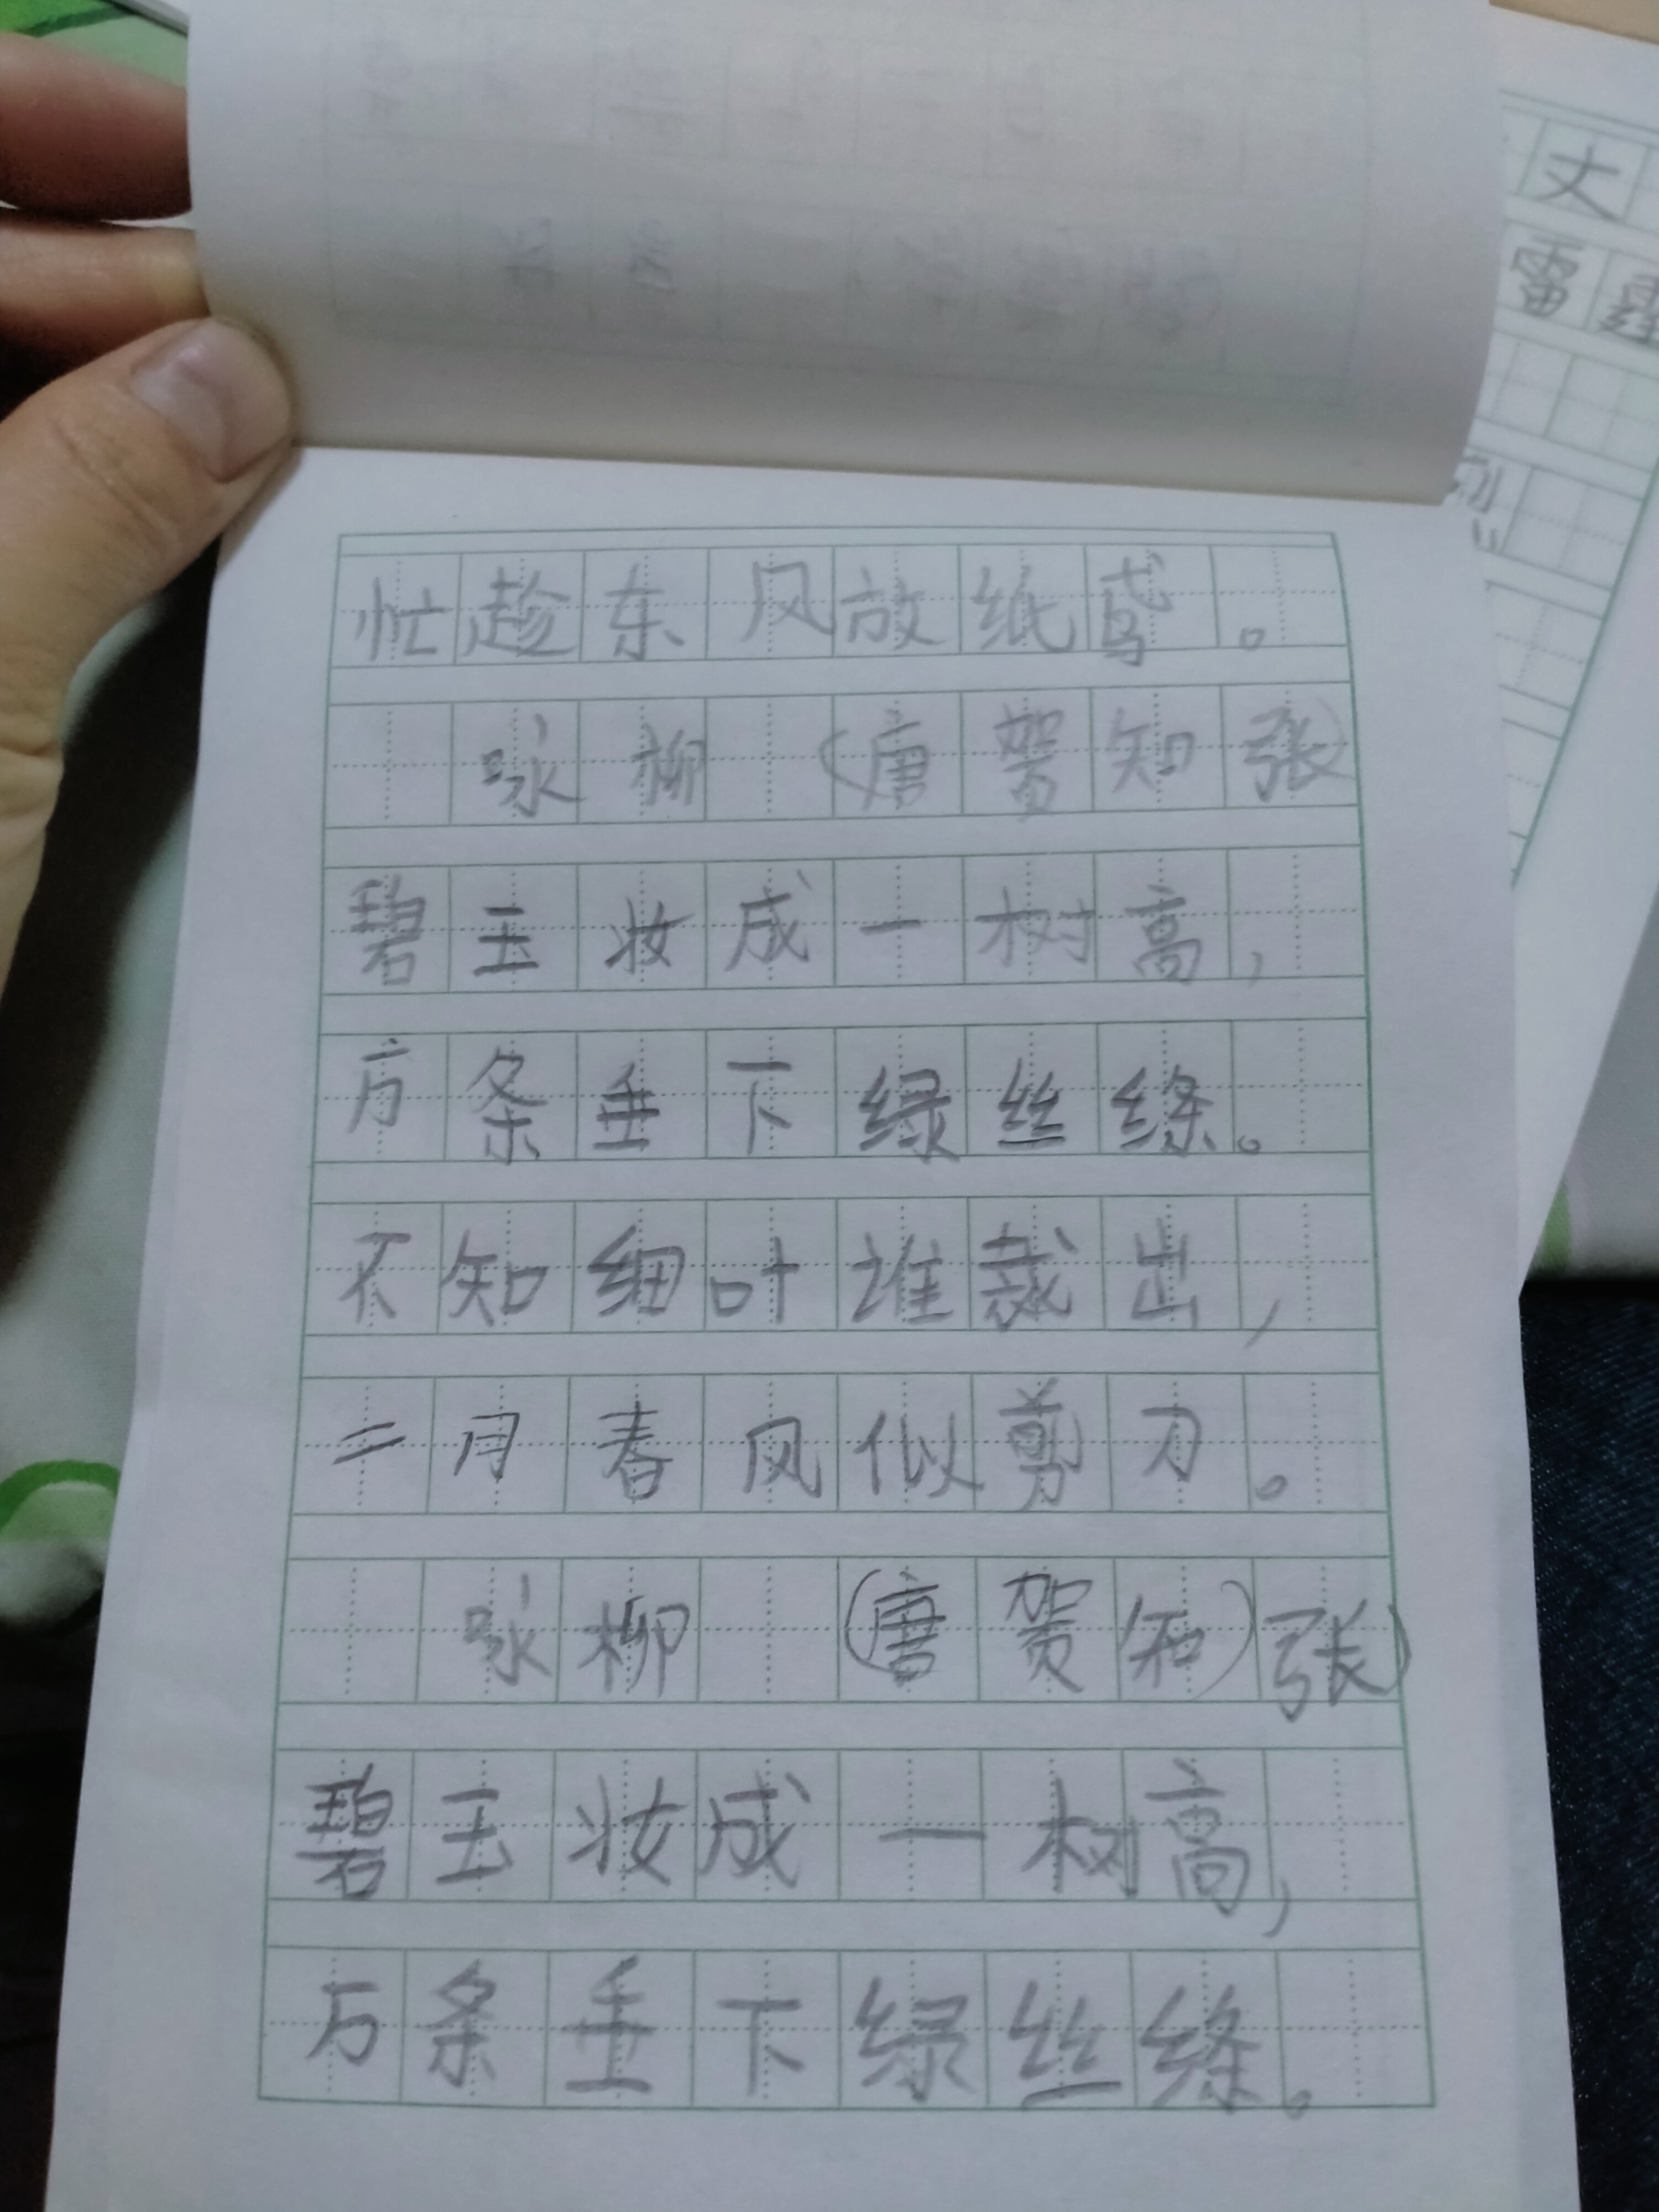 忙趁东风放纸鸢。
咏柳(唐贺知张)
碧玉妆成一树高,
方条垂下绿丝绦。
不知细叶谁裁出,
二月春风似剪刀。
咏柳(唐贺知)张)
碧玉妆成一树高,
万条垂下绿丝绦。
丈
雷霆